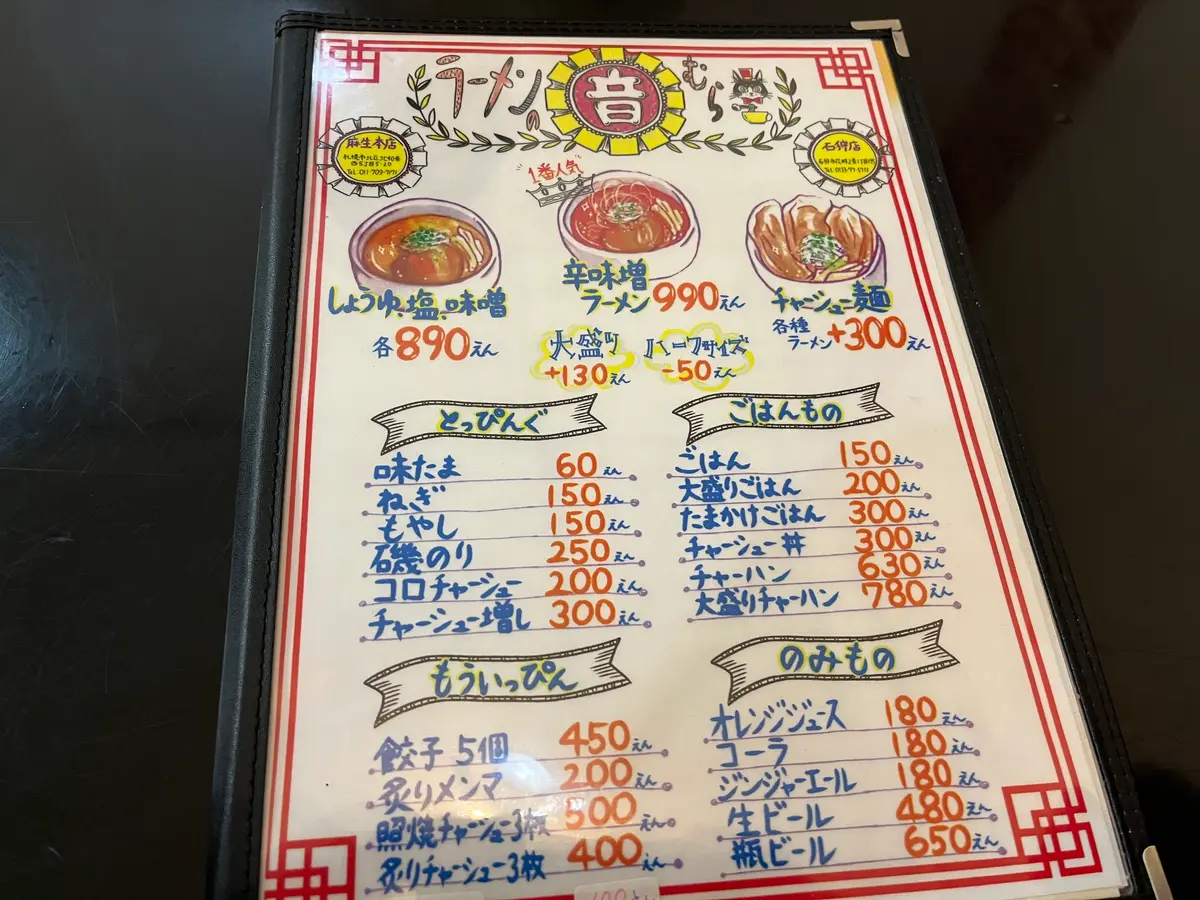 ラーメンの音むら
麻生本店
札幌市北区北40条
西5丁目5-20
TEL:011-709-7171
石狩店
1番人気
しょうゆ、塩、味噌
各890えん
辛味増
ラーメン990えん
チャーシュー麺
各種
ラーメン+300えん
大盛り
+130えん
ハーフサイズ
-50えん
とっぴんぐ
味たま 60えん
ねぎ 150えん
もやし 150えん
磯のり 250えん
コロチャーシュー 200えん
チャーシュー増し 300えん
ごはんもの
ごはん 150えん
大盛りごはん 200えん
たまかけごはん 300えん
チャーシュー丼 300えん
チャーハン 630えん
大盛りチャーハン 780えん
もういっぴん
餃子5個 450えん
炙りメンマ 200えん
照焼チャーシュー3枚 500えん
炙りチャーシュー3枚 400えん
のみもの
オレンジジュース 180えん
コーラ 180えん
ジンジャーエール 180えん
生ビール 480えん
瓶ビール 650えん